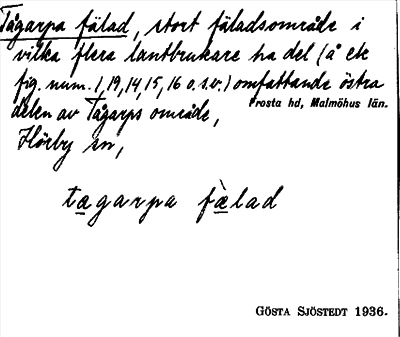 Tågarpa fälad, stort fäladsområde i
vilka flera lantbrukare ha del (å ek
fig. num. 1, 19, 14, 15, 16 o.s.v.) omfattande östra
delen av Tågarps område,
Frosta hd, Malmöhus län.
Hörby sn,
tægarpa fælad
GÖSTA SJÖSTEDT 1936.